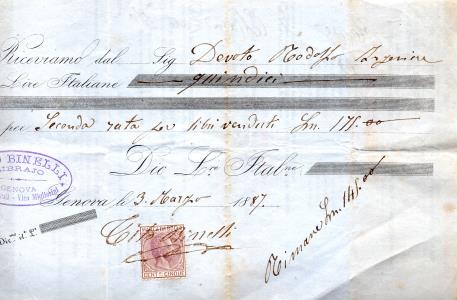 Riceviamo dal Sig Devoto Rodolfo
Lire Italiane quindici
per Seconda rata su libri venduti Ln. 175.00
Dic. Lre. Ital.ne
O BINELLI
LIBRAJO
GENOVA
Genova le 3 Marzo 1887
Dic.ne d.i L.e
Tito Binelli
CENT.MI CINQUE
Rimane Ln. 145.00